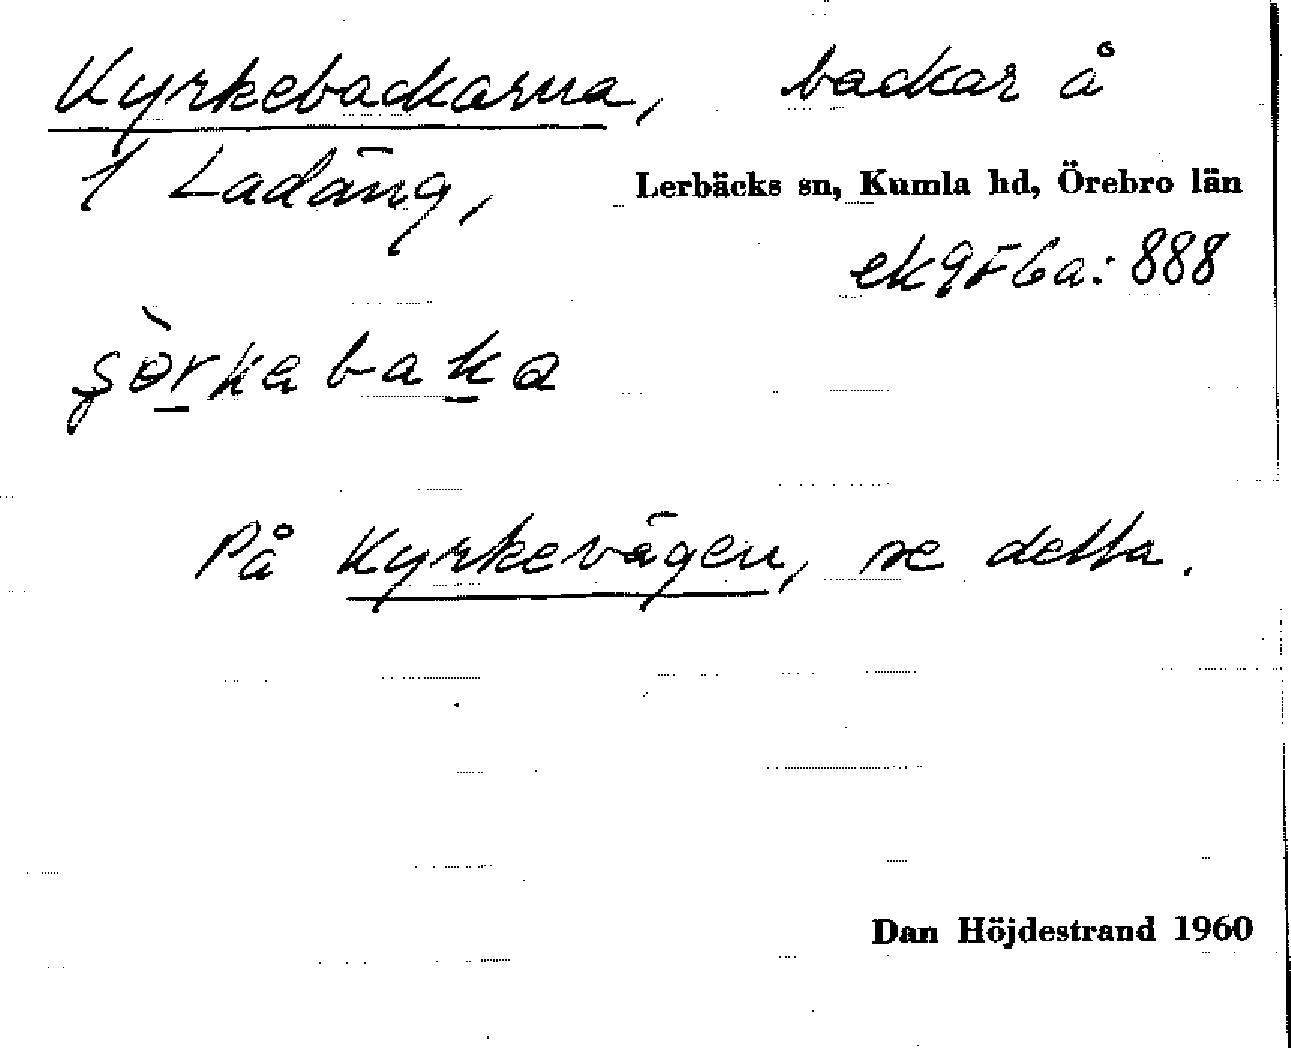 Kyrkebackarna, backar å
1 Ladäng, Lerbäcks sn, Kumla hd, Örebro län
ek 9F6a: 888
På Kyrkevägen, se detta.
Dan Höjdestrand 1960